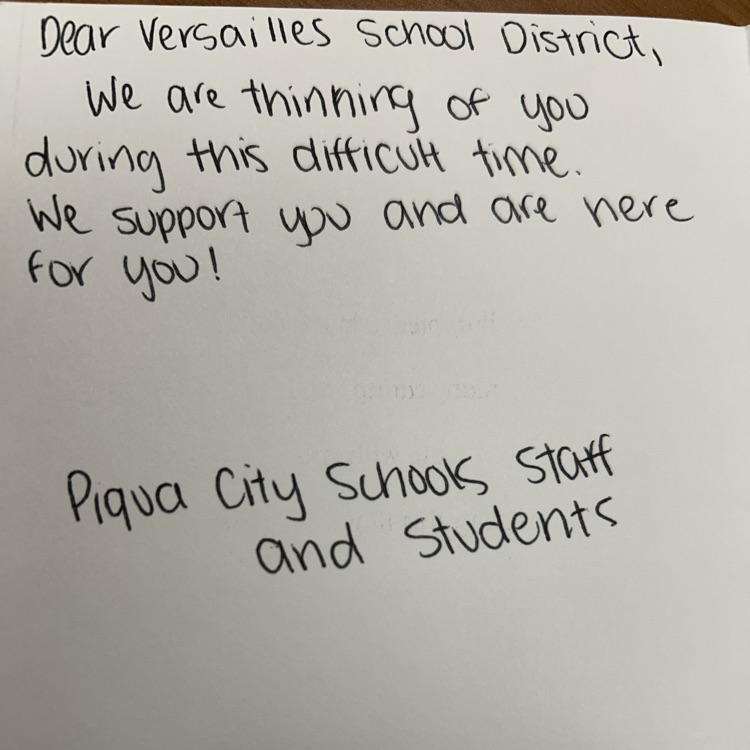 Dear Versailles School District,
We are thinning of you
during this difficult time.
We support you and are here
for you!
Piqua City Schools Staff
and Students